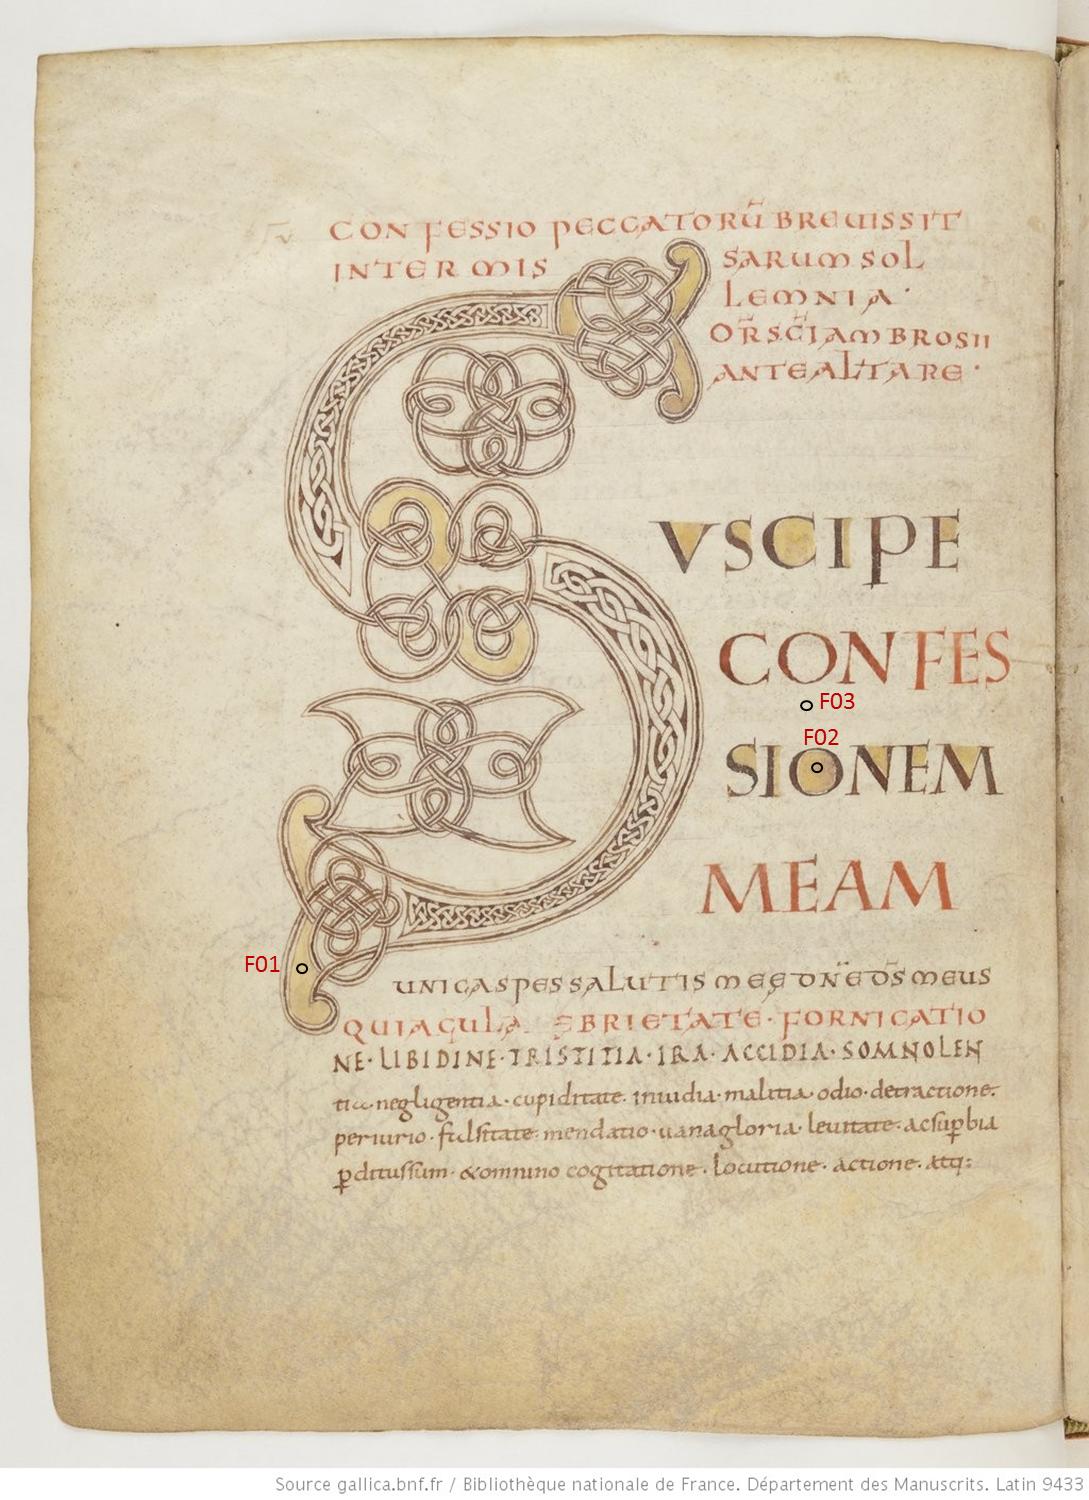 CONFESSIO PECCATORŪ BREUISSIT
INTER MIS
SARUM SOL
LEMNIA·
OR̄ SC̄I AMBROSII
ANTE ALTARE·
S
VSCIPE
CONFES
F03
F02
SIONEM
MEAM
F01
UNICA SPES SALUTIS MEĘ DN̄E DS̄ MEUS
QUIA GULA EBRIETATE· FORNICATIO
NE· LIBIDINE· TRISTITIA· IRA· ACCIDIA· SOMNOLEN
tia· negligentia· cupiditate· inuidia· malitia· odio· detractione·
periurio· falsitate· mendatio· uanagloria· leuitate· ac suꝑbia
ꝑditus sum· &omnino cogitatione· locutione· actione· atq:
Source gallica.bnf.fr / Bibliothèque nationale de France. Département des Manuscrits. Latin 9433